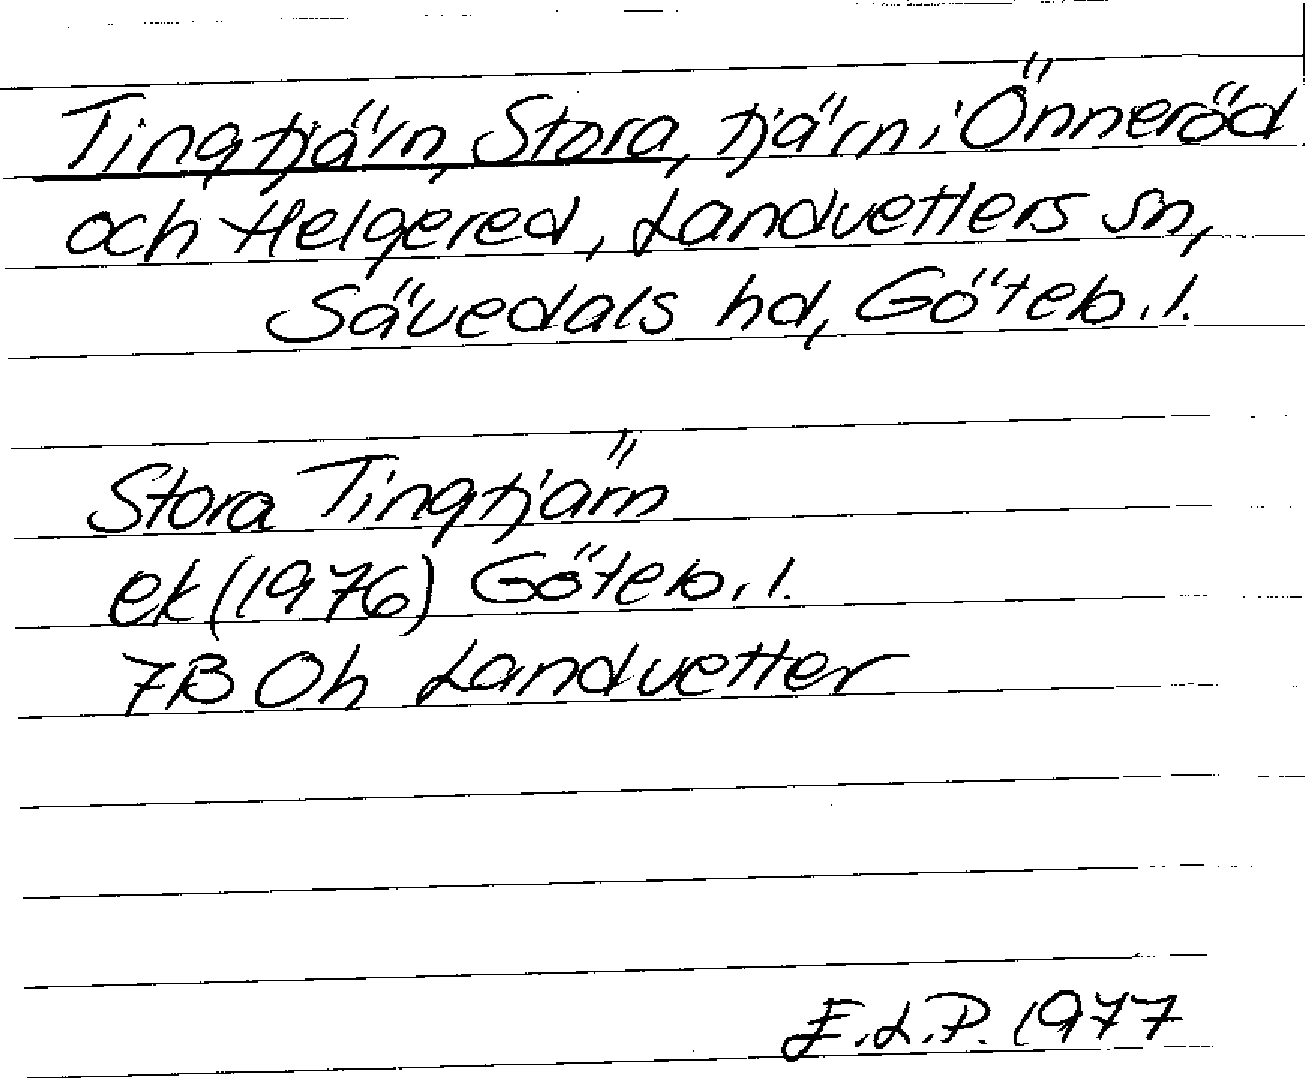 Tingtjärn, Stora, tjärn i Önneröd
och Helgered, Landvetters sn,
Sävedals hd, Göteb.l.
Stora Tingtjärn
ek (1976) Göteb.l.
7B 0h Landvetter
E.L.P. 1977